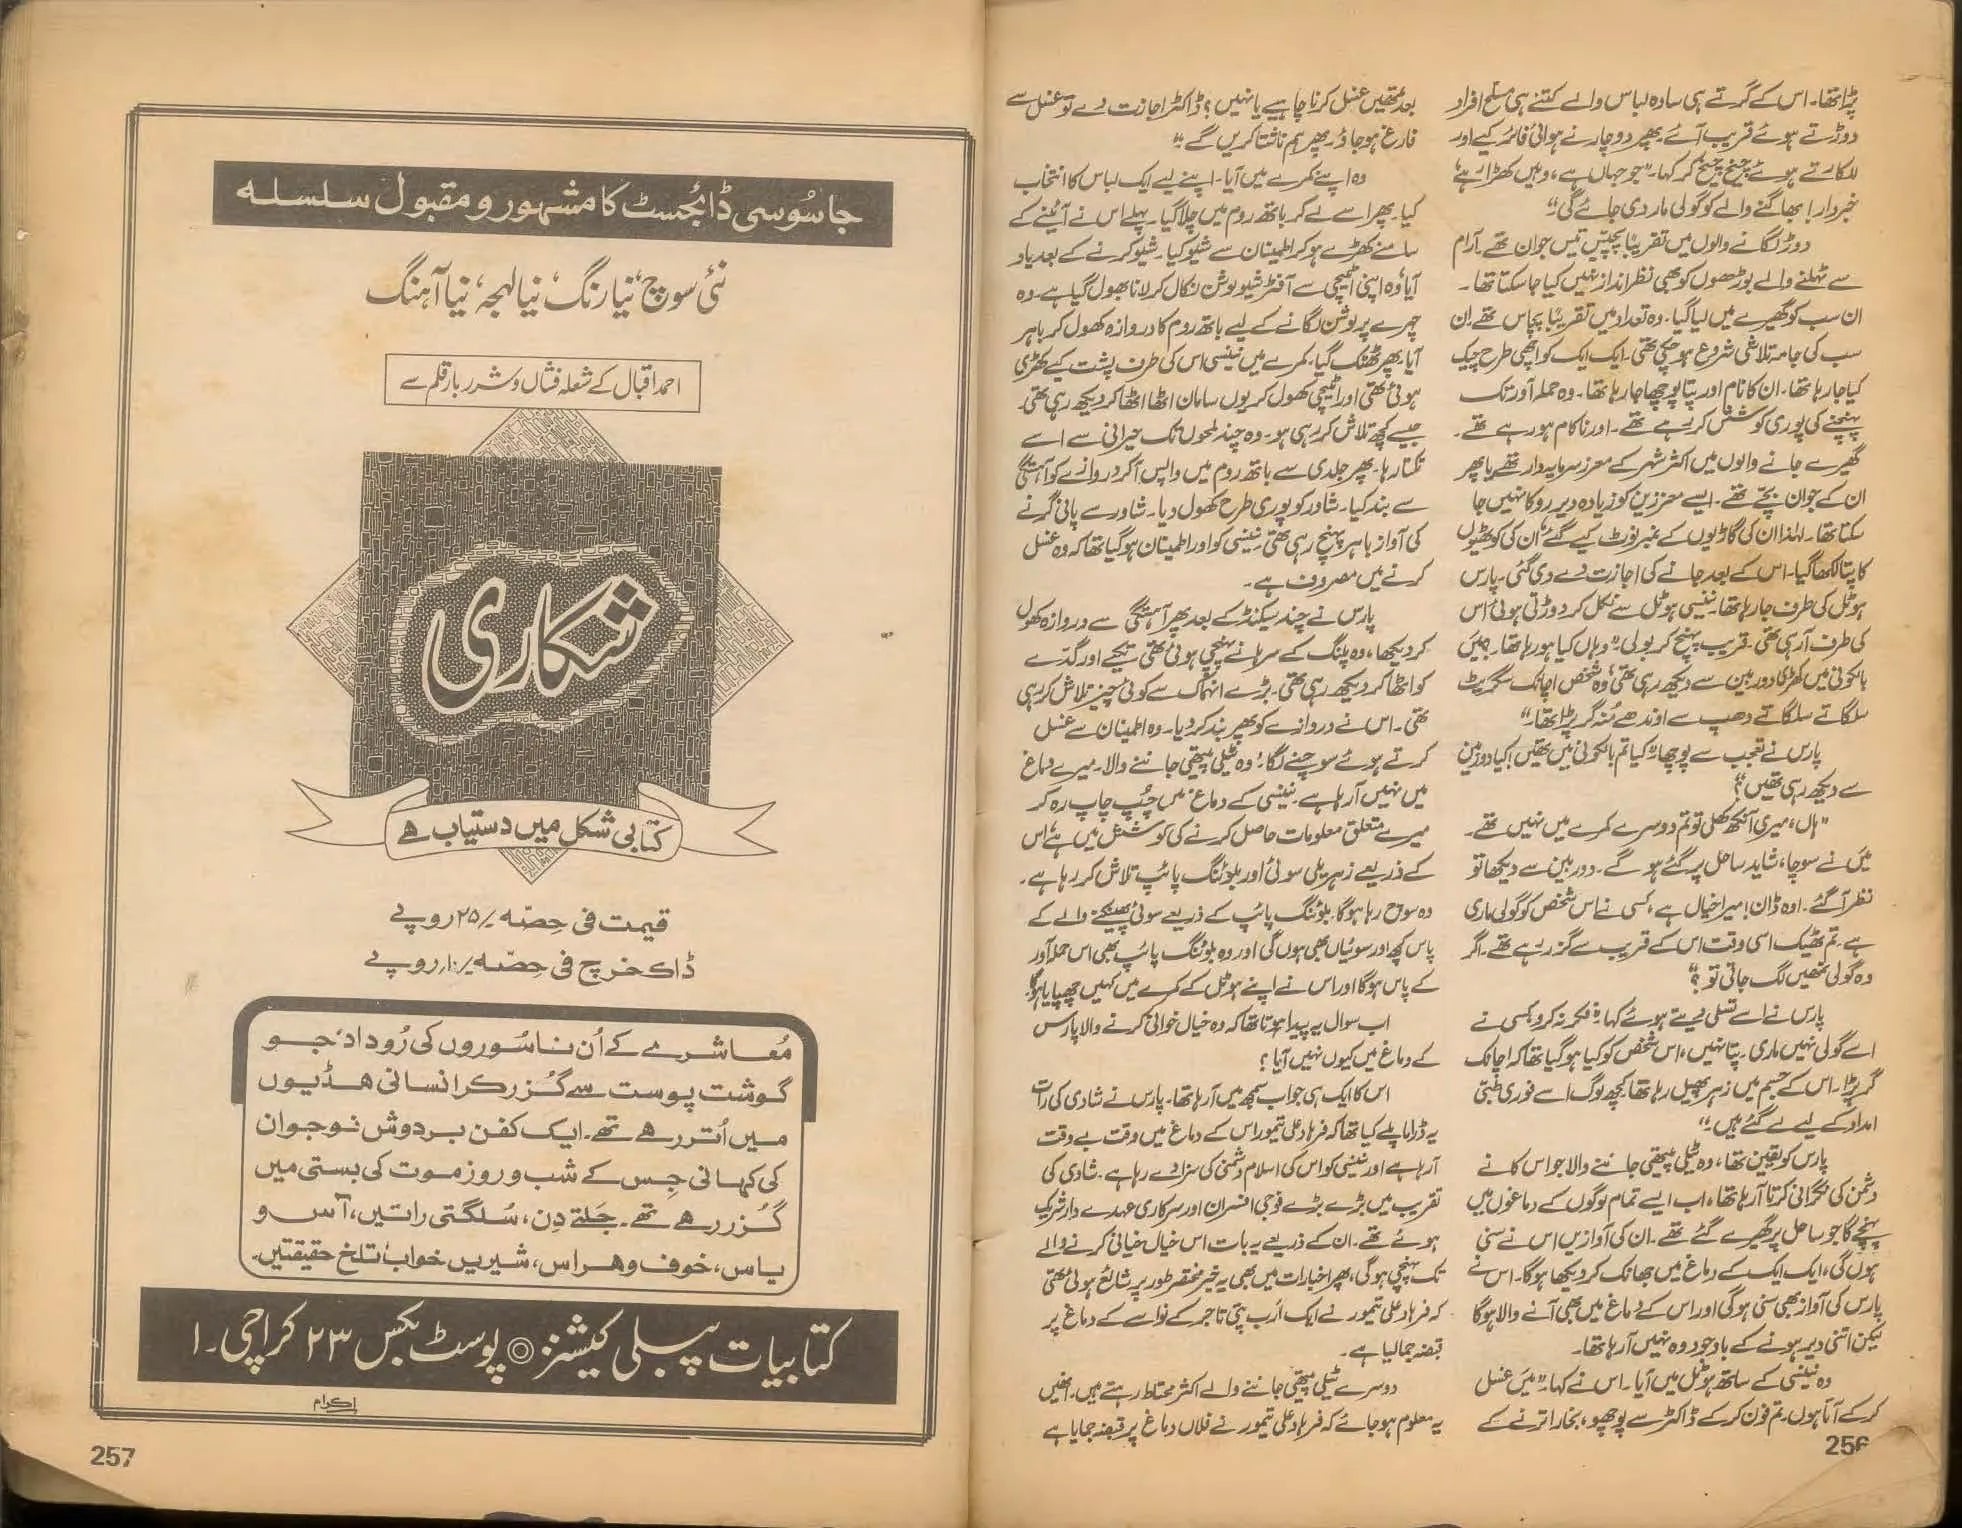 پڑا تھا۔ اس کے گرتے ہی سادہ لباس والے کتنے ہی مسلح افراد
دوڑتے ہوئے قریب آئے۔ پھر دو چار نے ہوائی فائر کیے اور
للکارتے ہوئے چیخ چیخ کر کہا۔ "جو جہاں ہے، وہیں کھڑا رہے'
خبردار! بھاگنے والے کو گولی مار دی جائے گی"
دوڑ لگانے والوں میں تقریباً پچیس تیس جوان تھے۔ آرام
سے ٹہلنے والے بوڑھوں کو بھی نظر انداز نہیں کیا جا سکتا تھا۔
ان سب کو گھیرے میں لیا گیا۔ وہ تعداد میں تقریباً پچاس تھے۔ ان
سب کی جامہ تلاشی شروع ہو چکی تھی۔ ایک ایک کو اچھی طرح چیک
کیا جا رہا تھا۔ ان کا نام اور پتا پوچھا جا رہا تھا۔ وہ حملہ آور تک
پہنچنے کی پوری کوشش کر رہے تھے۔ اور ناکام ہو رہے تھے۔
گھیرے جانے والوں میں اکثر شہر کے معزز سرمایہ دار تھے یا پھر
ان کے جوان بچے تھے۔ ایسے معززین کو زیادہ دیر روکا نہیں جا
سکتا تھا۔ لہٰذا ان کی گاڑیوں کے نمبر نوٹ کیے گئے' ان کی کوٹھیوں
کا پتا لکھا گیا۔ اس کے بعد جانے کی اجازت دے دی گئی۔ پارس
ہوٹل کی طرف جا رہا تھا۔ نینسی ہوٹل سے نکل کر دوڑتی ہوئی اس
کی طرف آ رہی تھی۔ قریب پہنچ کر بولی "وہاں کیا ہو رہا تھا۔ میں
بالکونی میں کھڑی دوربین سے دیکھ رہی تھی' وہ شخص اچانک سگریٹ
سلگاتے سلگاتے دھپ سے اوندھے منہ گر پڑا تھا۔"
پارس نے تعجب سے پوچھا۔ "کیا تم بالکونی میں تھیں! کیا دوربین
سے دیکھ رہی تھیں؟"
"ہاں، میری آنکھ کھلی تو تم دوسرے کمرے میں نہیں تھے۔
میں نے سوچا، شاید ساحل پر گئے ہو گے۔ دوربین سے دیکھا تو
نظر آ گئے۔ اوہ ڈان! میرا خیال ہے، کسی نے اس شخص کو گولی ماری
ہے۔ تم ٹھیک اسی وقت اس کے قریب سے گزر رہے تھے۔ اگر
وہ گولی تمھیں لگ جاتی تو؟"
پارس نے اسے تسلی دیتے ہوئے کہا "فکر نہ کرو، کسی نے
اسے گولی نہیں ماری۔ پتا نہیں، اس شخص کو کیا ہو گیا تھا کہ اچانک
گر پڑا۔ اس کے جسم میں زہر پھیل رہا تھا۔ کچھ لوگ اسے فوری طبی
امداد کے لیے لے گئے ہیں"
پارس کو یقین تھا، وہ ٹیلی پیتھی جاننے والا جو اس کانے
دشمن کی نگرانی کرتا آ رہا تھا، اب ایسے تمام لوگوں کے دماغوں میں
پہنچے گا جو ساحل پر گھیرے گئے تھے۔ ان کی آوازیں اس نے سنی
ہوں گی، ایک ایک کے دماغ میں جھانک کر دیکھا ہوگا۔ اس نے
پارس کی آواز بھی سنی ہوگی اور اس کے دماغ میں بھی آنے والا ہوگا
لیکن اتنی دیر ہونے کے باوجود وہ نہیں آ رہا تھا۔
وہ نینسی کے ساتھ ہوٹل میں آیا۔ اس نے کہا۔ "میں غسل
کر کے آتا ہوں۔ تم فون کر کے ڈاکٹر سے پوچھو، بخار اترنے کے
256
بعد تمھیں غسل کرنا چاہیے یا نہیں؟ ڈاکٹر اجازت دے تو غسل سے
فارغ ہو جاؤ۔ پھر ہم ناشتا کریں گے"
وہ اپنے کمرے میں آیا۔ اپنے لیے ایک لباس کا انتخاب
کیا۔ پھر اسے لے کر باتھ روم میں چلا گیا۔ پہلے اس نے آئینے کے
سامنے کھڑے ہو کر اطمینان سے شیو کیا۔ شیو کرنے کے بعد یاد
آیا' وہ اپنی اٹیچی سے آفٹر شیو لوشن نکال کر لانا بھول گیا ہے۔ وہ
چہرے پر لوشن لگانے کے لیے باتھ روم کا دروازہ کھول کر باہر
آیا۔ پھر ٹھٹک گیا۔ کمرے میں نینسی اس کی طرف پشت کیے کھڑی
ہوئی تھی اور اٹیچی کھول کر یوں سامان اٹھا اٹھا کر دیکھ رہی تھی۔
جیسے کچھ تلاش کر رہی ہو۔ وہ چند لمحوں تک حیرانی سے اسے
تکتا رہا۔ پھر جلدی سے باتھ روم میں واپس آ کر دروازے کو آہستگی
سے بند کیا۔ شاور کو پوری طرح کھول دیا۔ شاور سے پانی گرنے
کی آواز باہر پہنچ رہی تھی۔ نینسی کو اور اطمینان ہو گیا تھا کہ وہ غسل
کرنے میں مصروف ہے۔
پارس نے چند سیکنڈ کے بعد پھر آہستگی سے دروازہ کھول
کر دیکھا، وہ پلنگ کے سرہانے پہنچی ہوئی تھی۔ تکیے اور گدّے
کو اٹھا کر دیکھ رہی تھی۔ بڑے انہماک سے کوئی چیز تلاش کر رہی
تھی۔ اس نے دروازے کو پھر بند کر دیا۔ وہ اطمینان سے غسل
کرتے ہوئے سوچنے لگا۔ 'وہ ٹیلی پیتھی جاننے والا۔ میرے دماغ
میں نہیں آ رہا ہے۔ نینسی کے دماغ میں چُپ چاپ رہ کر
میرے متعلق معلومات حاصل کرنے کی کوشش میں ہے' اس
کے ذریعے زہریلی سوئی اور بلوئنگ پائپ تلاش کر رہا ہے۔
وہ سوچ رہا ہوگا، بلوئنگ پائپ کے ذریعے سوئی پھینکنے والے کے
پاس کچھ اور سوئیاں بھی ہوں گی اور وہ بلوئنگ پائپ بھی اس حملہ آور
کے پاس ہوگا اور اس نے اپنے ہوٹل کے کمرے میں کہیں چھپایا ہوگا۔
اب سوال یہ پیدا ہوتا تھا کہ وہ خیال خوانی کرنے والا پارس
کے دماغ میں کیوں نہیں آیا؟
اس کا ایک ہی جواب سمجھ میں آ رہا تھا۔ پارس نے شادی کی رات
یہ ڈراما پلے کیا تھا کہ فرہاد علی تیمور اس کے دماغ میں وقت بے وقت
آ رہا ہے اور نینسی کو اس کی اسلام دشمنی کی سزا دے رہا ہے۔ شادی کی
تقریب میں بڑے بڑے فوجی افسران اور سرکاری عہدے دار شریک
ہوئے تھے۔ ان کے ذریعے یہ بات اس خیال خوانی کرنے والے
تک پہنچی ہوگی، پھر اخبارات میں بھی یہ خبر مختصر طور پر شائع ہوئی تھی
کہ فرہاد علی تیمور نے ایک ارب پتی تاجر کے نواسے کے دماغ پر
قبضہ جما لیا ہے۔
دوسرے ٹیلی پیتھی جاننے والے اکثر محتاط رہتے ہیں۔ انھیں
یہ معلوم ہو جائے کہ فرہاد علی تیمور نے فلاں دماغ پر قبضہ جمایا ہے
جاسُوسی ڈائجسٹ کا مشہور و مقبول سلسلہ
نئی سوچ' نیا رنگ' نیا لہجہ' نیا آہنگ
احمد اقبال کے شعلہ فشاں و شرر بار قلم سے
شکاری
کتابی شکل میں دستیاب ہے
قیمت فی حِصّہ /۲۵ روپے
ڈاک خرچ فی حِصّہ /۱۰ روپے
مُعاشرے کے اُن ناسُوروں کی رُوداد' جو
گوشت پوست سے گُزر کر انسانی ہڈیوں
میں اُتر رہے تھے۔ ایک کفن بردوش نوجوان
کی کہانی جِس کے شب و روز موت کی بستی میں
گُزر رہے تھے۔ جَلتے دِن، سُلگتی راتیں، آس و
یاس، خوف و ہراس، شیریں خواب' تلخ حقیقتیں۔
کتابیات پبلی کیشنز ◎ پوسٹ بکس ۲۳ کراچی۔۱
اکرام
257